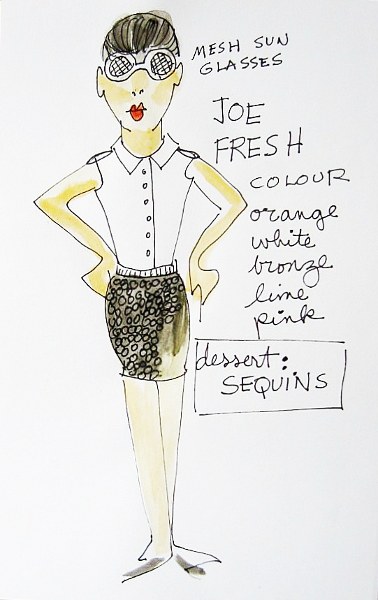 MESH SUN
GLASSES
JOE
FRESH
COLOUR
orange
white
bronze
lime
pink
dessert:
SEQUINS